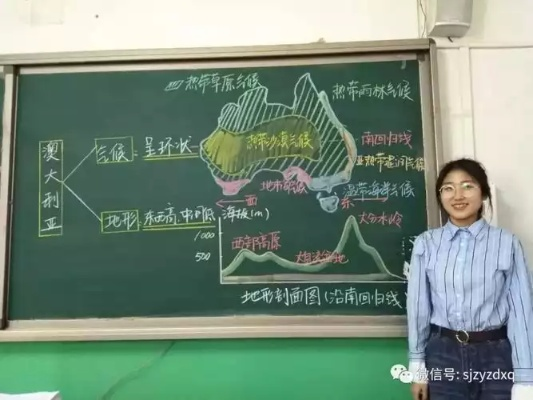 热带草原气候
热带雨林气候
澳大利亚
气候:呈环状
热带沙漠气候
南回归线
亚热带湿润气候
地中海气候
温带海洋气候
西
东
地形:东西高,中间低
海拔(m)
1000
500
西部高原
大自流盆地
大分水岭
地形剖面图(沿南回归线
微信号: sjzyzdxq